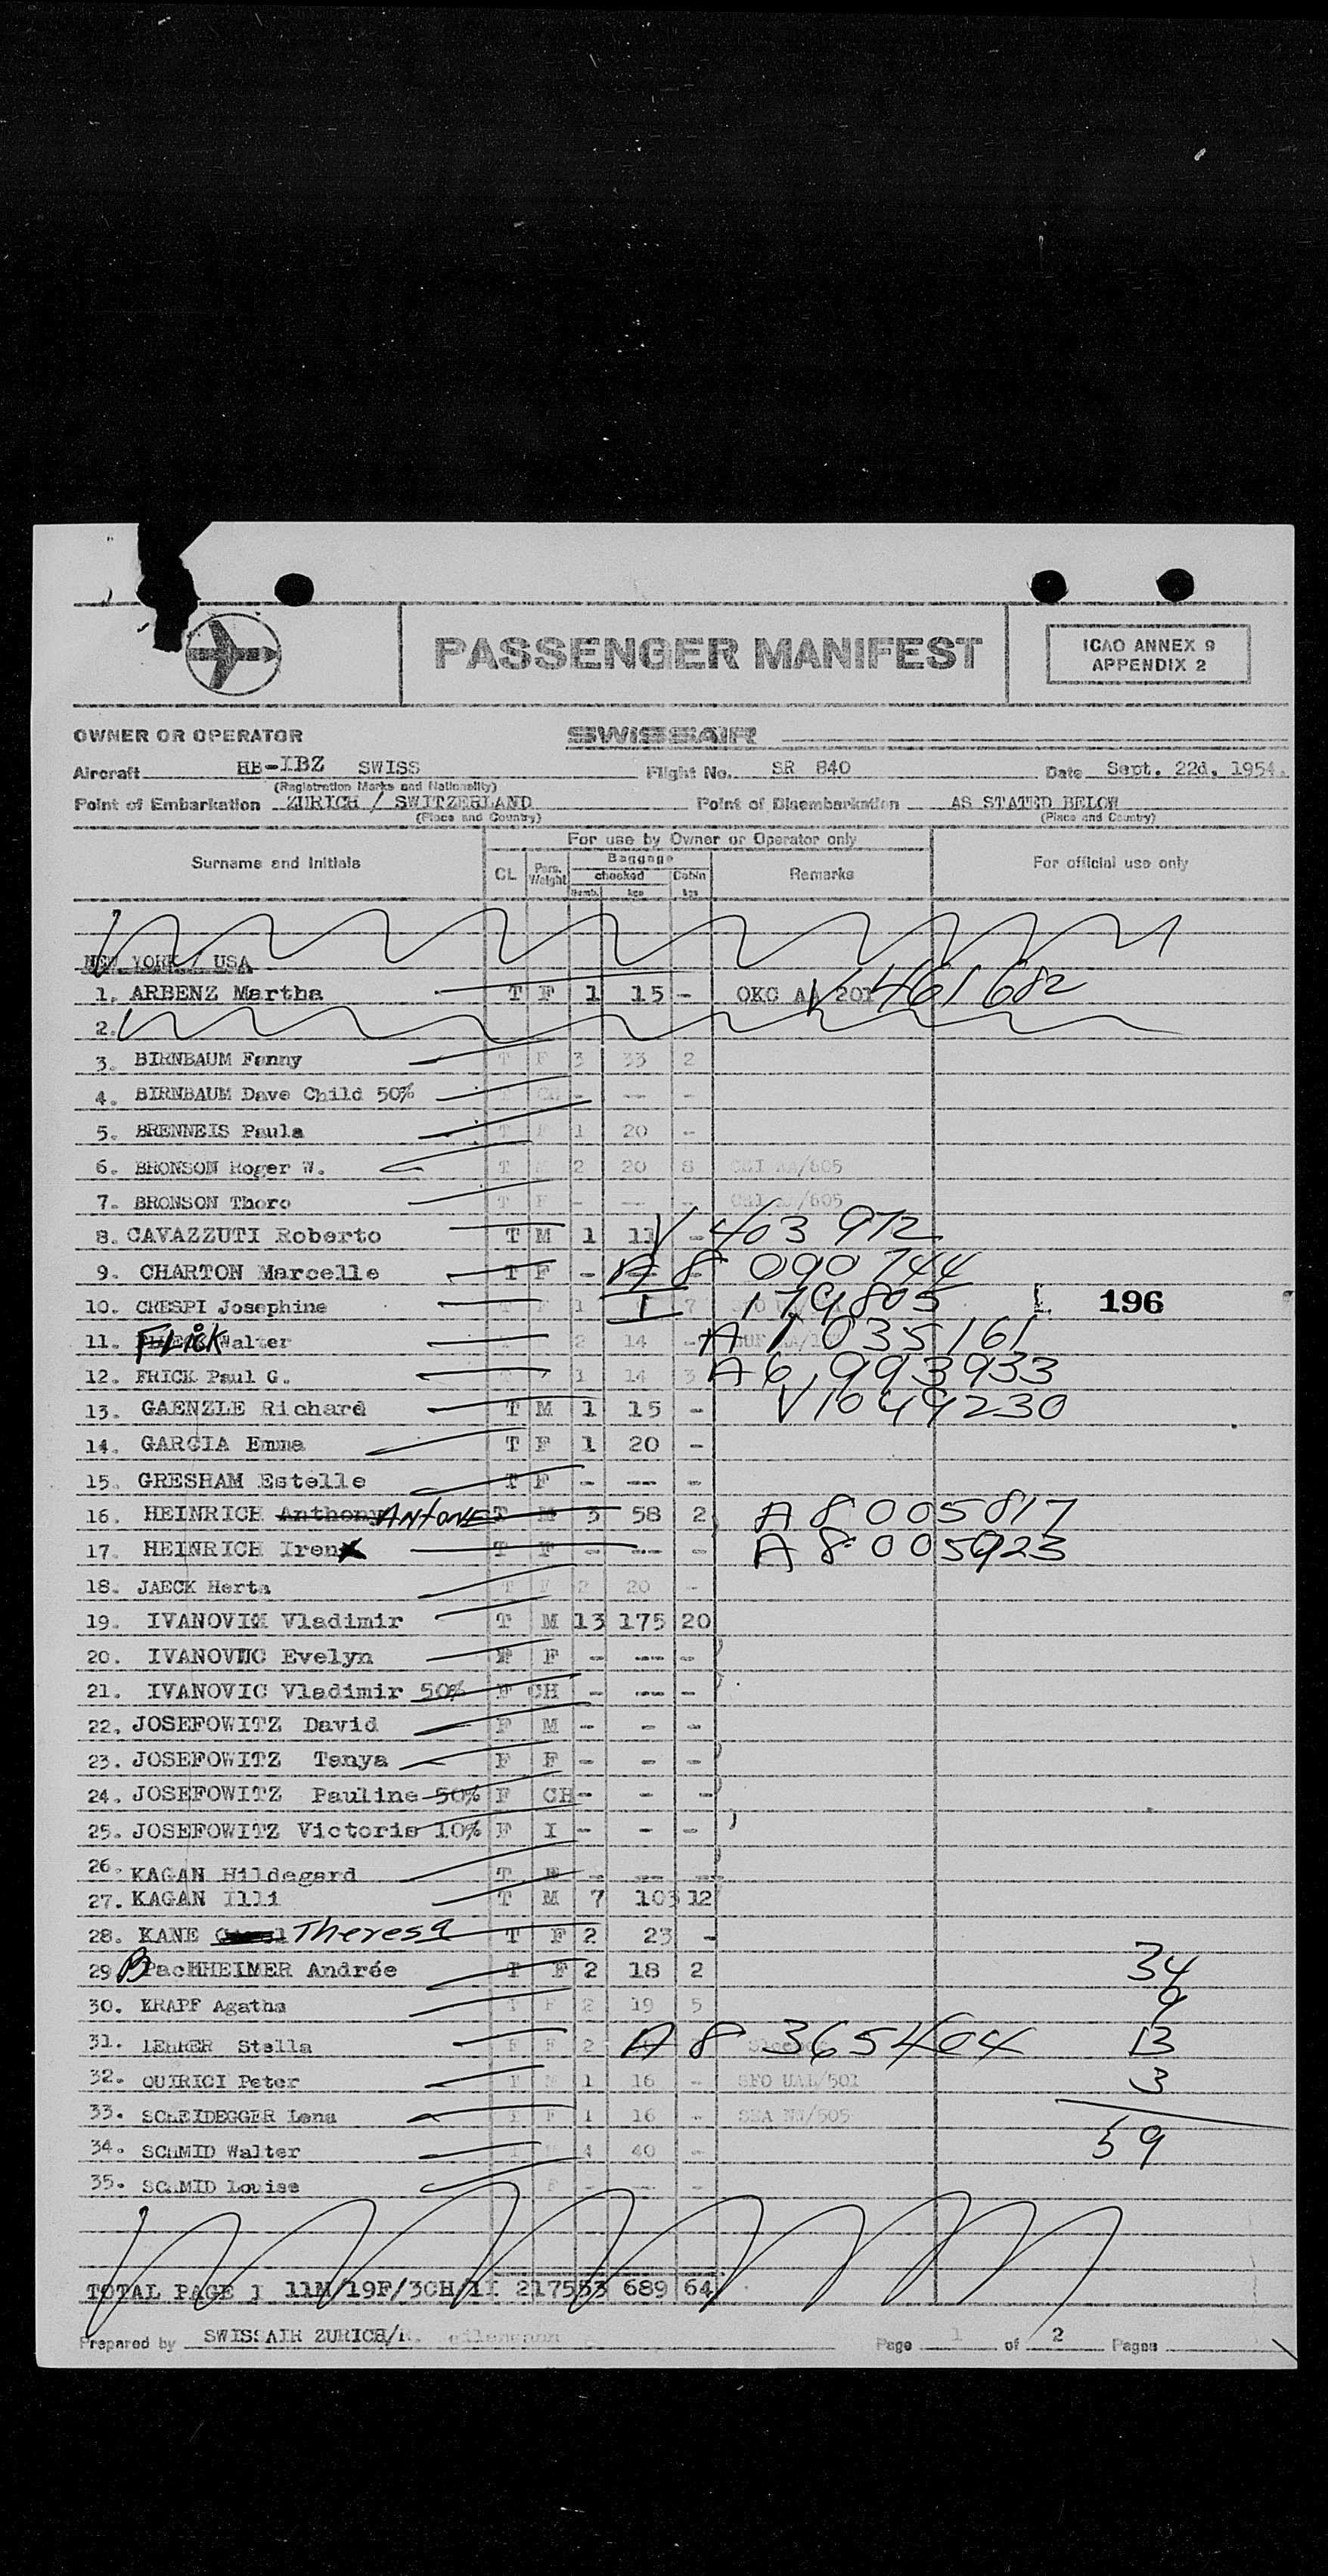 PASSENGER MANIFEST
ICAO ANNEX 9
APPENDIX 2
OWNER OR OPERATOR SWISSAIR
Aircraft HB-IBZ SWISS Flight No. SR 840 Date Sept. 22d, 1954.
(Registration Marks and Nationality)
Point of Embarkation ZURICH / SWITZERLAND Point of Disembarkation AS STATED BELOW
(Place and Country) (Place and Country)
For use by Owner or Operator only
Surname and Initials CL Pers. Weight Baggage checked Numb. kgs Cabin kgs Remarks For official use only
NEW YORK / USA
1. ARBENZ Martha T F 1 15 - OKC AA 201 V 461 682
2.
3. BIRNBAUM Fanny T F 3 33 2
4. BIRNBAUM Dave Child 50% - -- -
5. BRENNEIS Paula T F 1 20 -
6. BRONSON Roger W. T 2 20 8 /605
7. BRONSON Thoro T F - -- - /605
8. CAVAZZUTI Roberto T M 1 11 - V 403 972
9. CHARTON Marcelle T F - A 8 090 744
10. CRESPI Josephine T F 1 7 I 179805 L 196
11. FLICK Walter 2 14 - A 7 035 161
12. FRICK Paul G. 1 14 3 A6 993933
13. GAENZLE Richard T M 1 15 - V1049230
14. GARCIA Emma T F 1 20 -
15. GRESHAM Estelle T F - --- -
16. HEINRICH Anthony ANTONE T M 5 58 2 A 8 005817
17. HEINRICH Iren T F - --- - A 8 005923
18. JAECK Herta T F 2 20 -
19. IVANOVIM Vladimir T M 13 175 20
20. IVANOVIC Evelyn F F - --- -
21. IVANOVIC Vladimir 50% F CH - --- -
22. JOSEFOWITZ David F M - - -
23. JOSEFOWITZ Tanya F F - - -
24. JOSEFOWITZ Pauline 50% F CH - - -
25. JOSEFOWITZ Victoria 10% F I - - -
26. KAGAN Hildegard T F - -- --
27. KAGAN Illi T M 7 103 12
28. KANE Theresa T F 2 23 -
29 BacHHEIMER Andrée T F 2 18 2 34
30. KRAPF Agatha T F 2 19 5 9
31. LEHRER Stella F F 2 A 8 365404 13
32. QUIRICI Peter T M 1 16 - SFO UAL/501 3
33. SCHEIDEGGER Lena T F 1 16 - SEA NW/505
34. SCHMID Walter T M 4 40 - 59
35. SCHMID Louise F - -- -
TOTAL PAGE 1 11M/19F/3CH/1I 2175 53 689 64
Prepared by SWISSAIR ZURICH/ Page 1 of 2 Pages